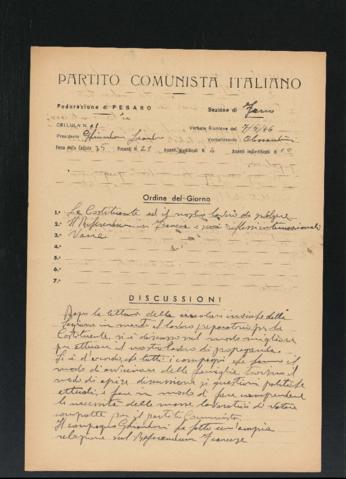 PARTITO COMUNISTA ITALIANO
Federazione di PESARO Sezione di Fano
CELLULA N.
Verbale Riunione del 7/5/46
Presidente Ghiandoni Verbalizzante
Forza della Cellula 35 Presenti N. 21 Assenti giustificati N. 4 Assenti ingiustificati N. 10
Ordine del Giorno
1.° La Costituente ed il nostro lavoro da svolgere
2.° Il Referendum in Francia e suoi riflessi internazionali
3.° Varie
4.°
5.°
6.°
7.°
DISCUSSIONI
Dopo la lettura delle circolari inviate dalla
Sezione in merito al lavoro preparatorio per la
Costituente, si è discusso sul modo migliore
per attuare il nostro lavoro di propaganda.
Si è d'accordo che tutti i compagni che hanno il
modo di avvicinare delle famiglie trovino il
modo di aprire discussioni su questioni politiche
attuali, e fare in modo di fare comprendere
la necessità delle masse lavoratrici di votare
compatte per il partito Comunista.
Il compagno Ghiandoni ha fatto un'ampia
relazione sul Referendum Francese